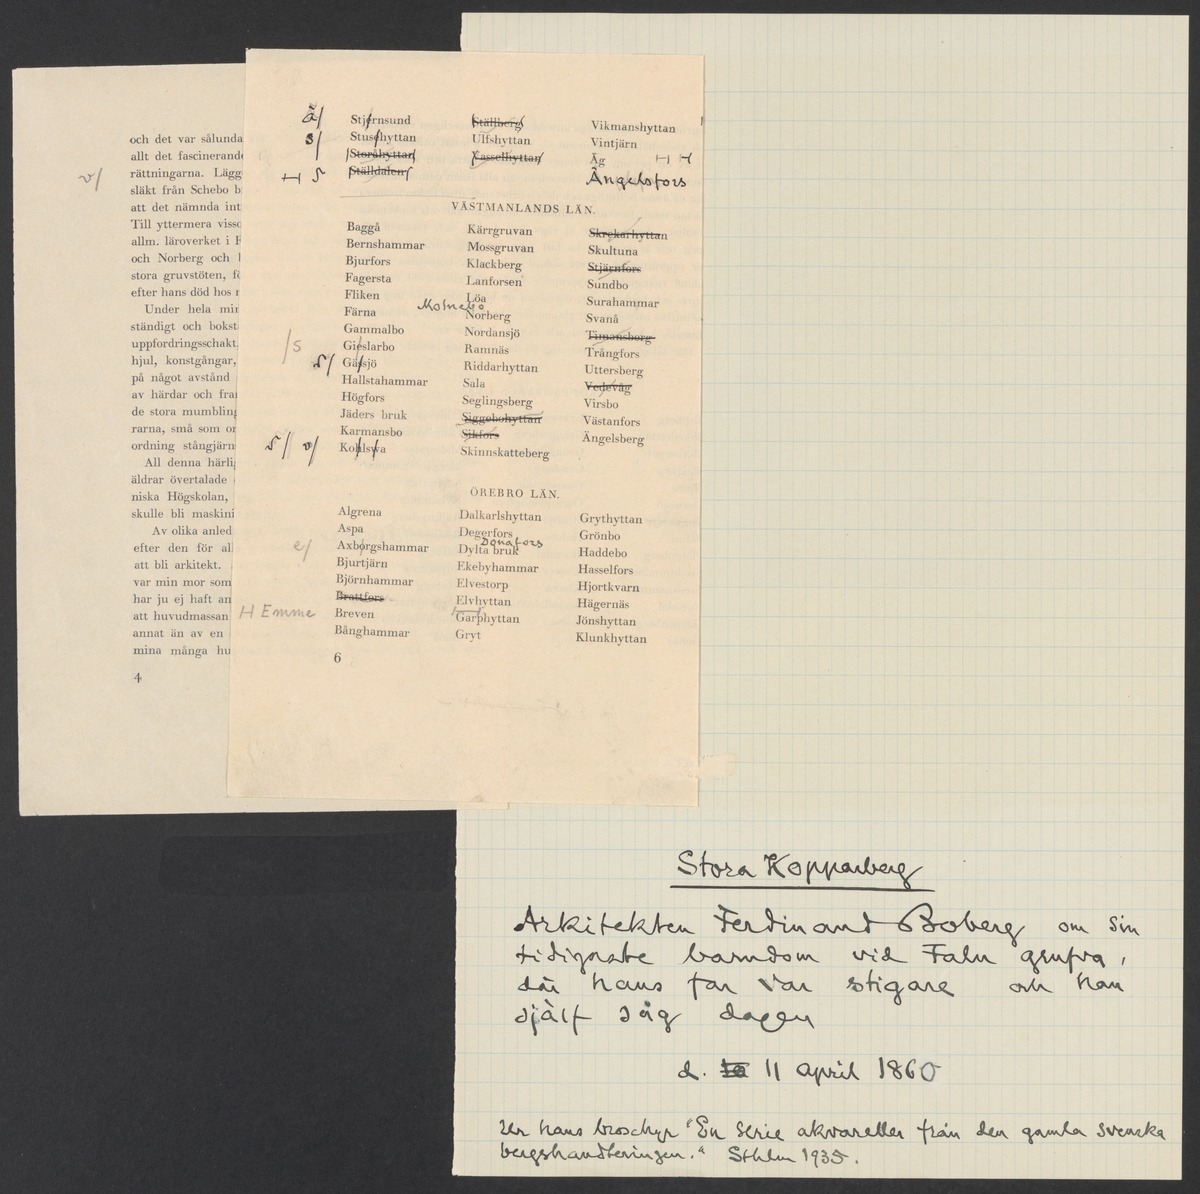 och det var sålunda
allt det fascinerande
rättningarna. Lägg
släkt från Schebo b
att det nämnda int
Till yttermera visso
allm. läroverket i F
och Norberg och
stora gruvstöten, fö
efter hans död hos
Under hela min
ständigt och bokst
uppfordringsschakt,
hjul, konstgångar,
på något avstånd
av härdar och fra
de stora mumbling
rarna, små som or
ordning stångjärn
All denna härlig
äldrar övertalade
niska Högskolan,
skulle bli maskini
Av olika anled
efter den för al
att bli arkitekt.
var min mor som
har ju ej haft an
att huvudmassan
annat än av en
mina många hu
4
v/
ä/ Stjernsund
s/ Stusehyttan
Storåhyttan
H S Ställdalen
Ställberg
Ulfshyttan
Kasselhyttan
Vikmanshyttan
Vintjärn
Äg H H
Ängelsfors
VÄSTMANLANDS LÄN.
Baggå
Bernshammar
Bjurfors
Fagersta
Fliken
Färna
Gammalbo
/s Gieslarbo
s/ Gässjö
Hallstahammar
Högfors
Jäders bruk
Karmansbo
s/ v/ Kohlswa
Kärrgruvan
Mossgruvan
Klackberg
Lanforsen
Löa
Molnebo
Norberg
Nordansjö
Ramnäs
Riddarhyttan
Sala
Seglingsberg
Siggebohyttan
Sikfors
Skinnskatteberg
Skrekarhyttan
Skultuna
Stjärnfors
Sundbo
Surahammar
Svanå
Timansberg
Trångfors
Uttersberg
Vedevåg
Virsbo
Västanfors
Ängelsberg
ÖREBRO LÄN.
Algrena
Aspa
e/ Axborgshammar
Bjurtjärn
Björnhammar
Brattfors
H Emme Breven
Bånghammar
Dalkarlshyttan
Degerfors
Donafors
Dylta bruk
Ekebyhammar
Elvestorp
Elvhyttan
Garphyttan
Gryt
Grythyttan
Grönbo
Haddebo
Hasselfors
Hjortkvarn
Hägernäs
Jönshyttan
Klunkhyttan
6
Stora Kopparberg
Arkitekten Ferdinand Boberg om sin
tidigaste barndom vid Falu grufva,
där hans far var stigare och han
själf såg dagen
d. 11 april 1860
Ur hans broschyr "En serie akvareller från den gamla svenska
bergshandteringen." Sthlm 1935.